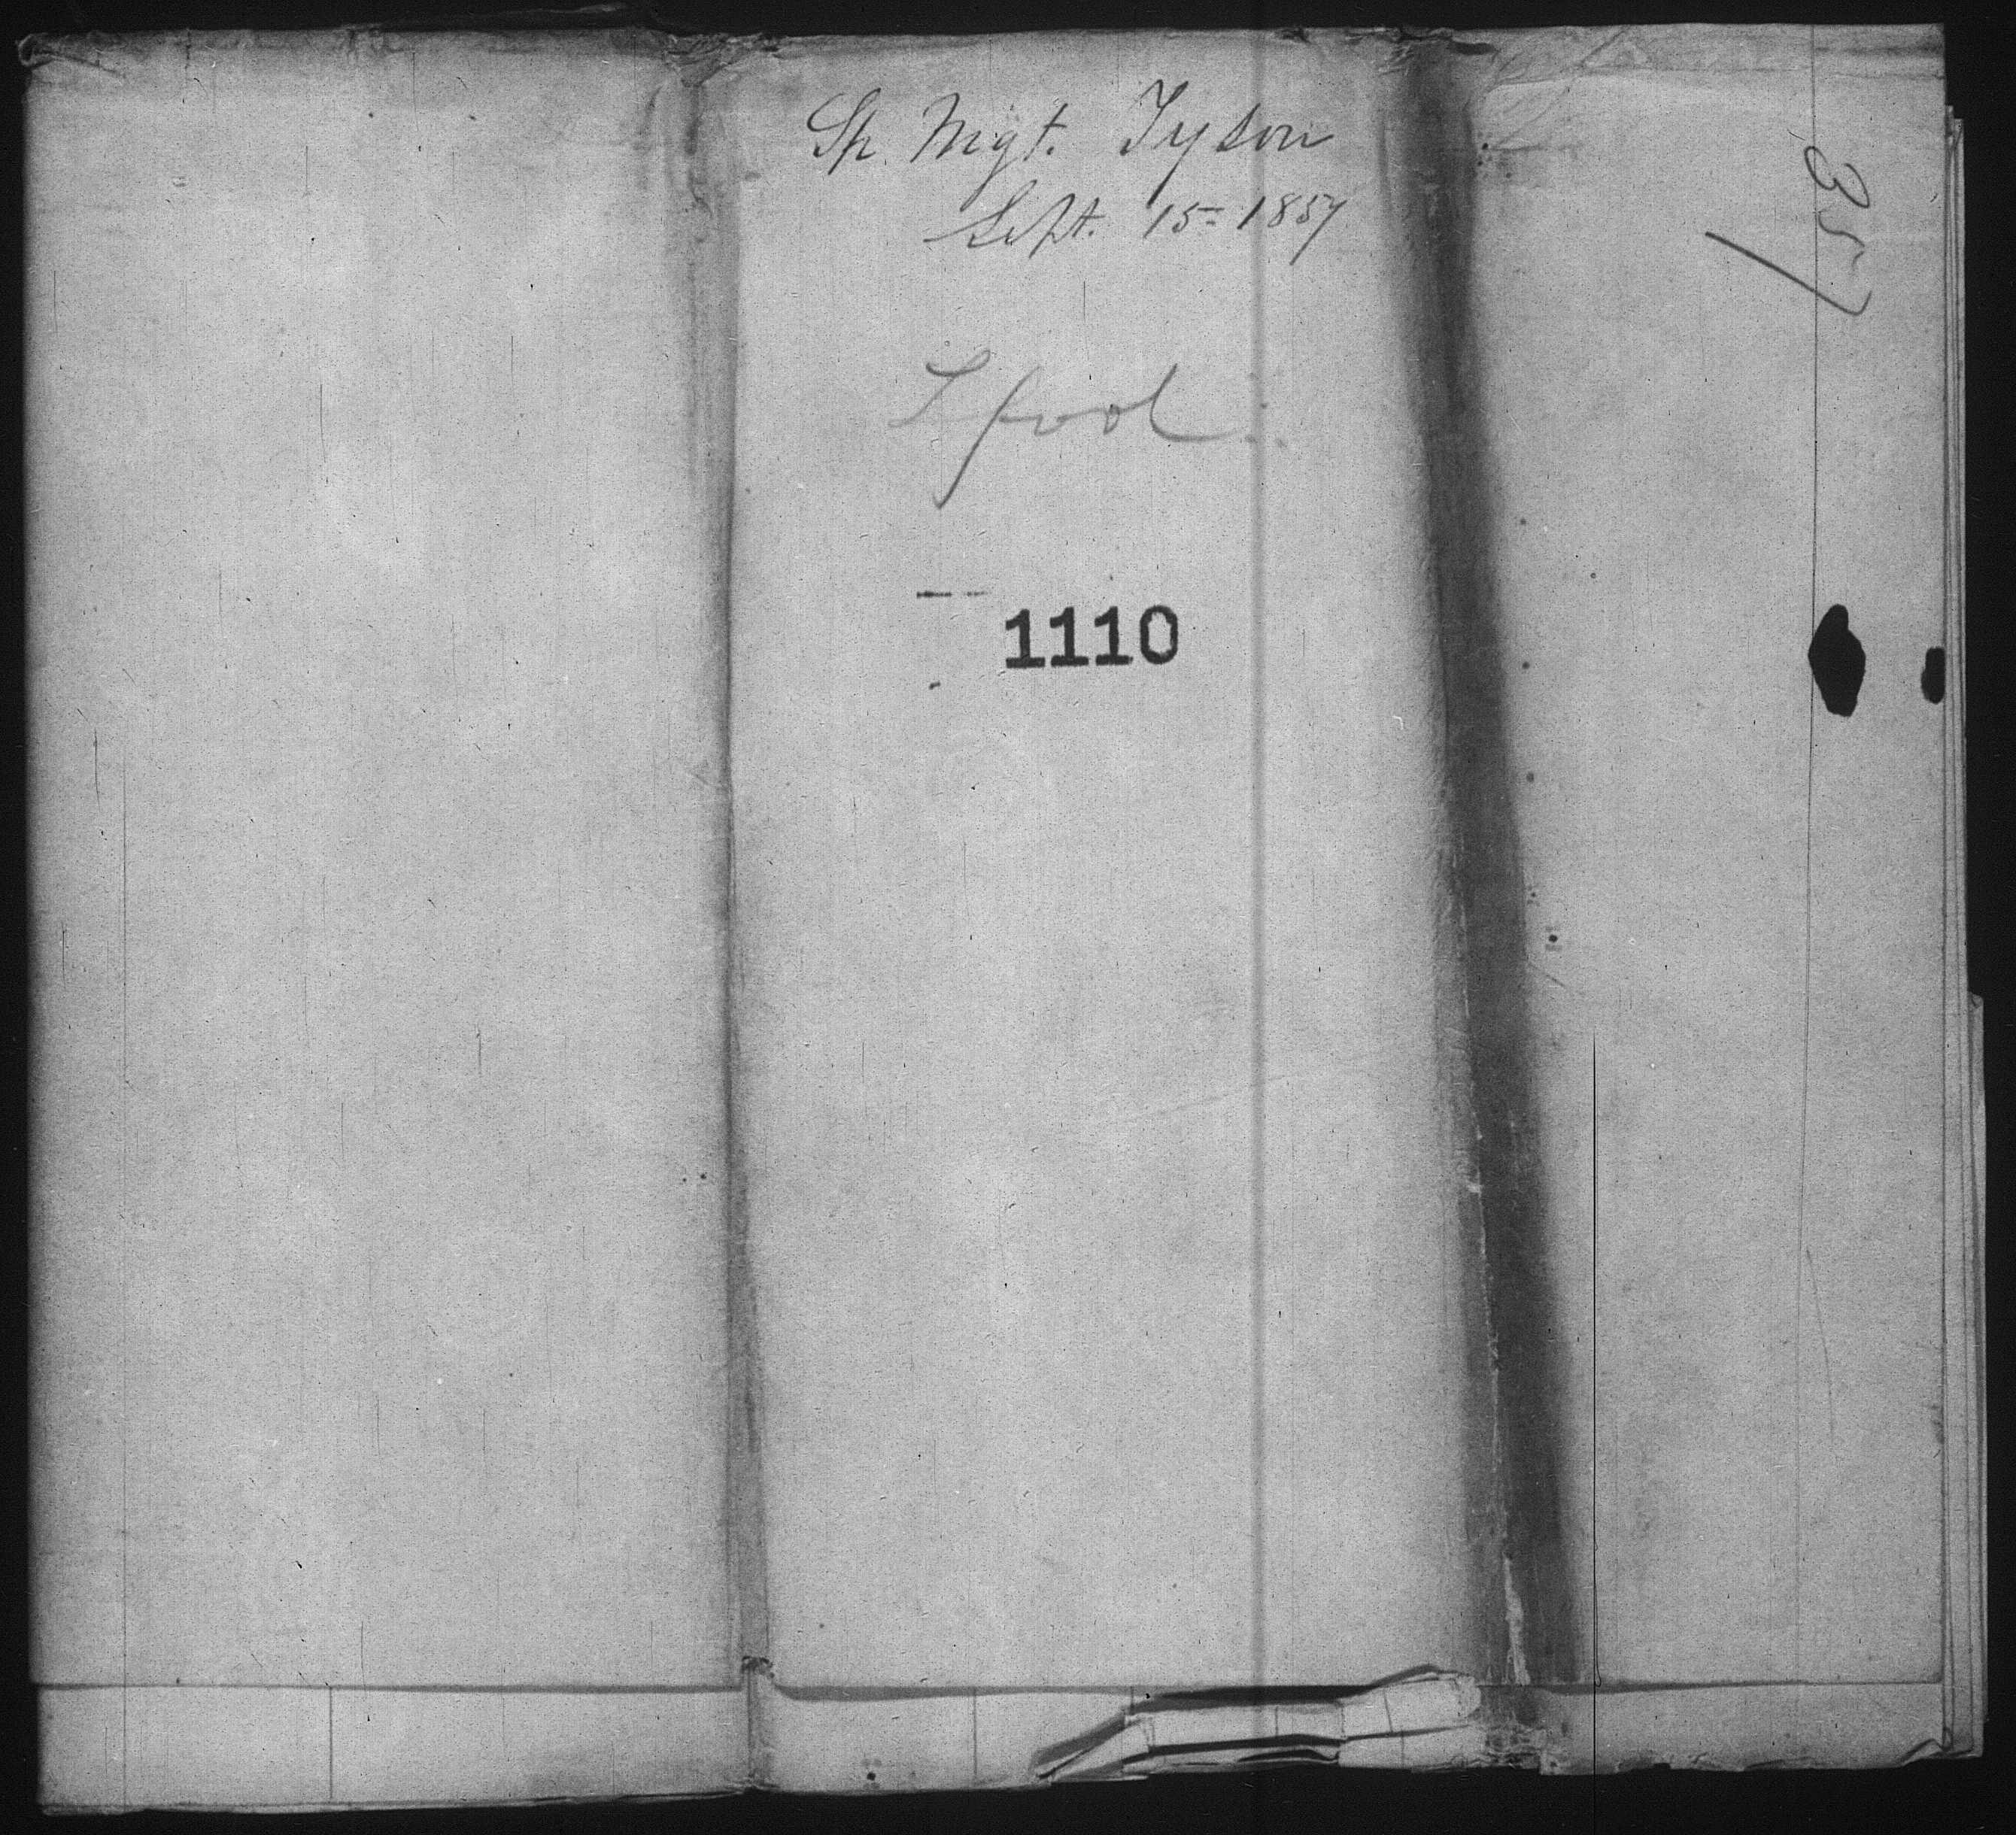 Sh. Mgt. Tyson
Sept. 15= 1857
Lpool.
1110
357